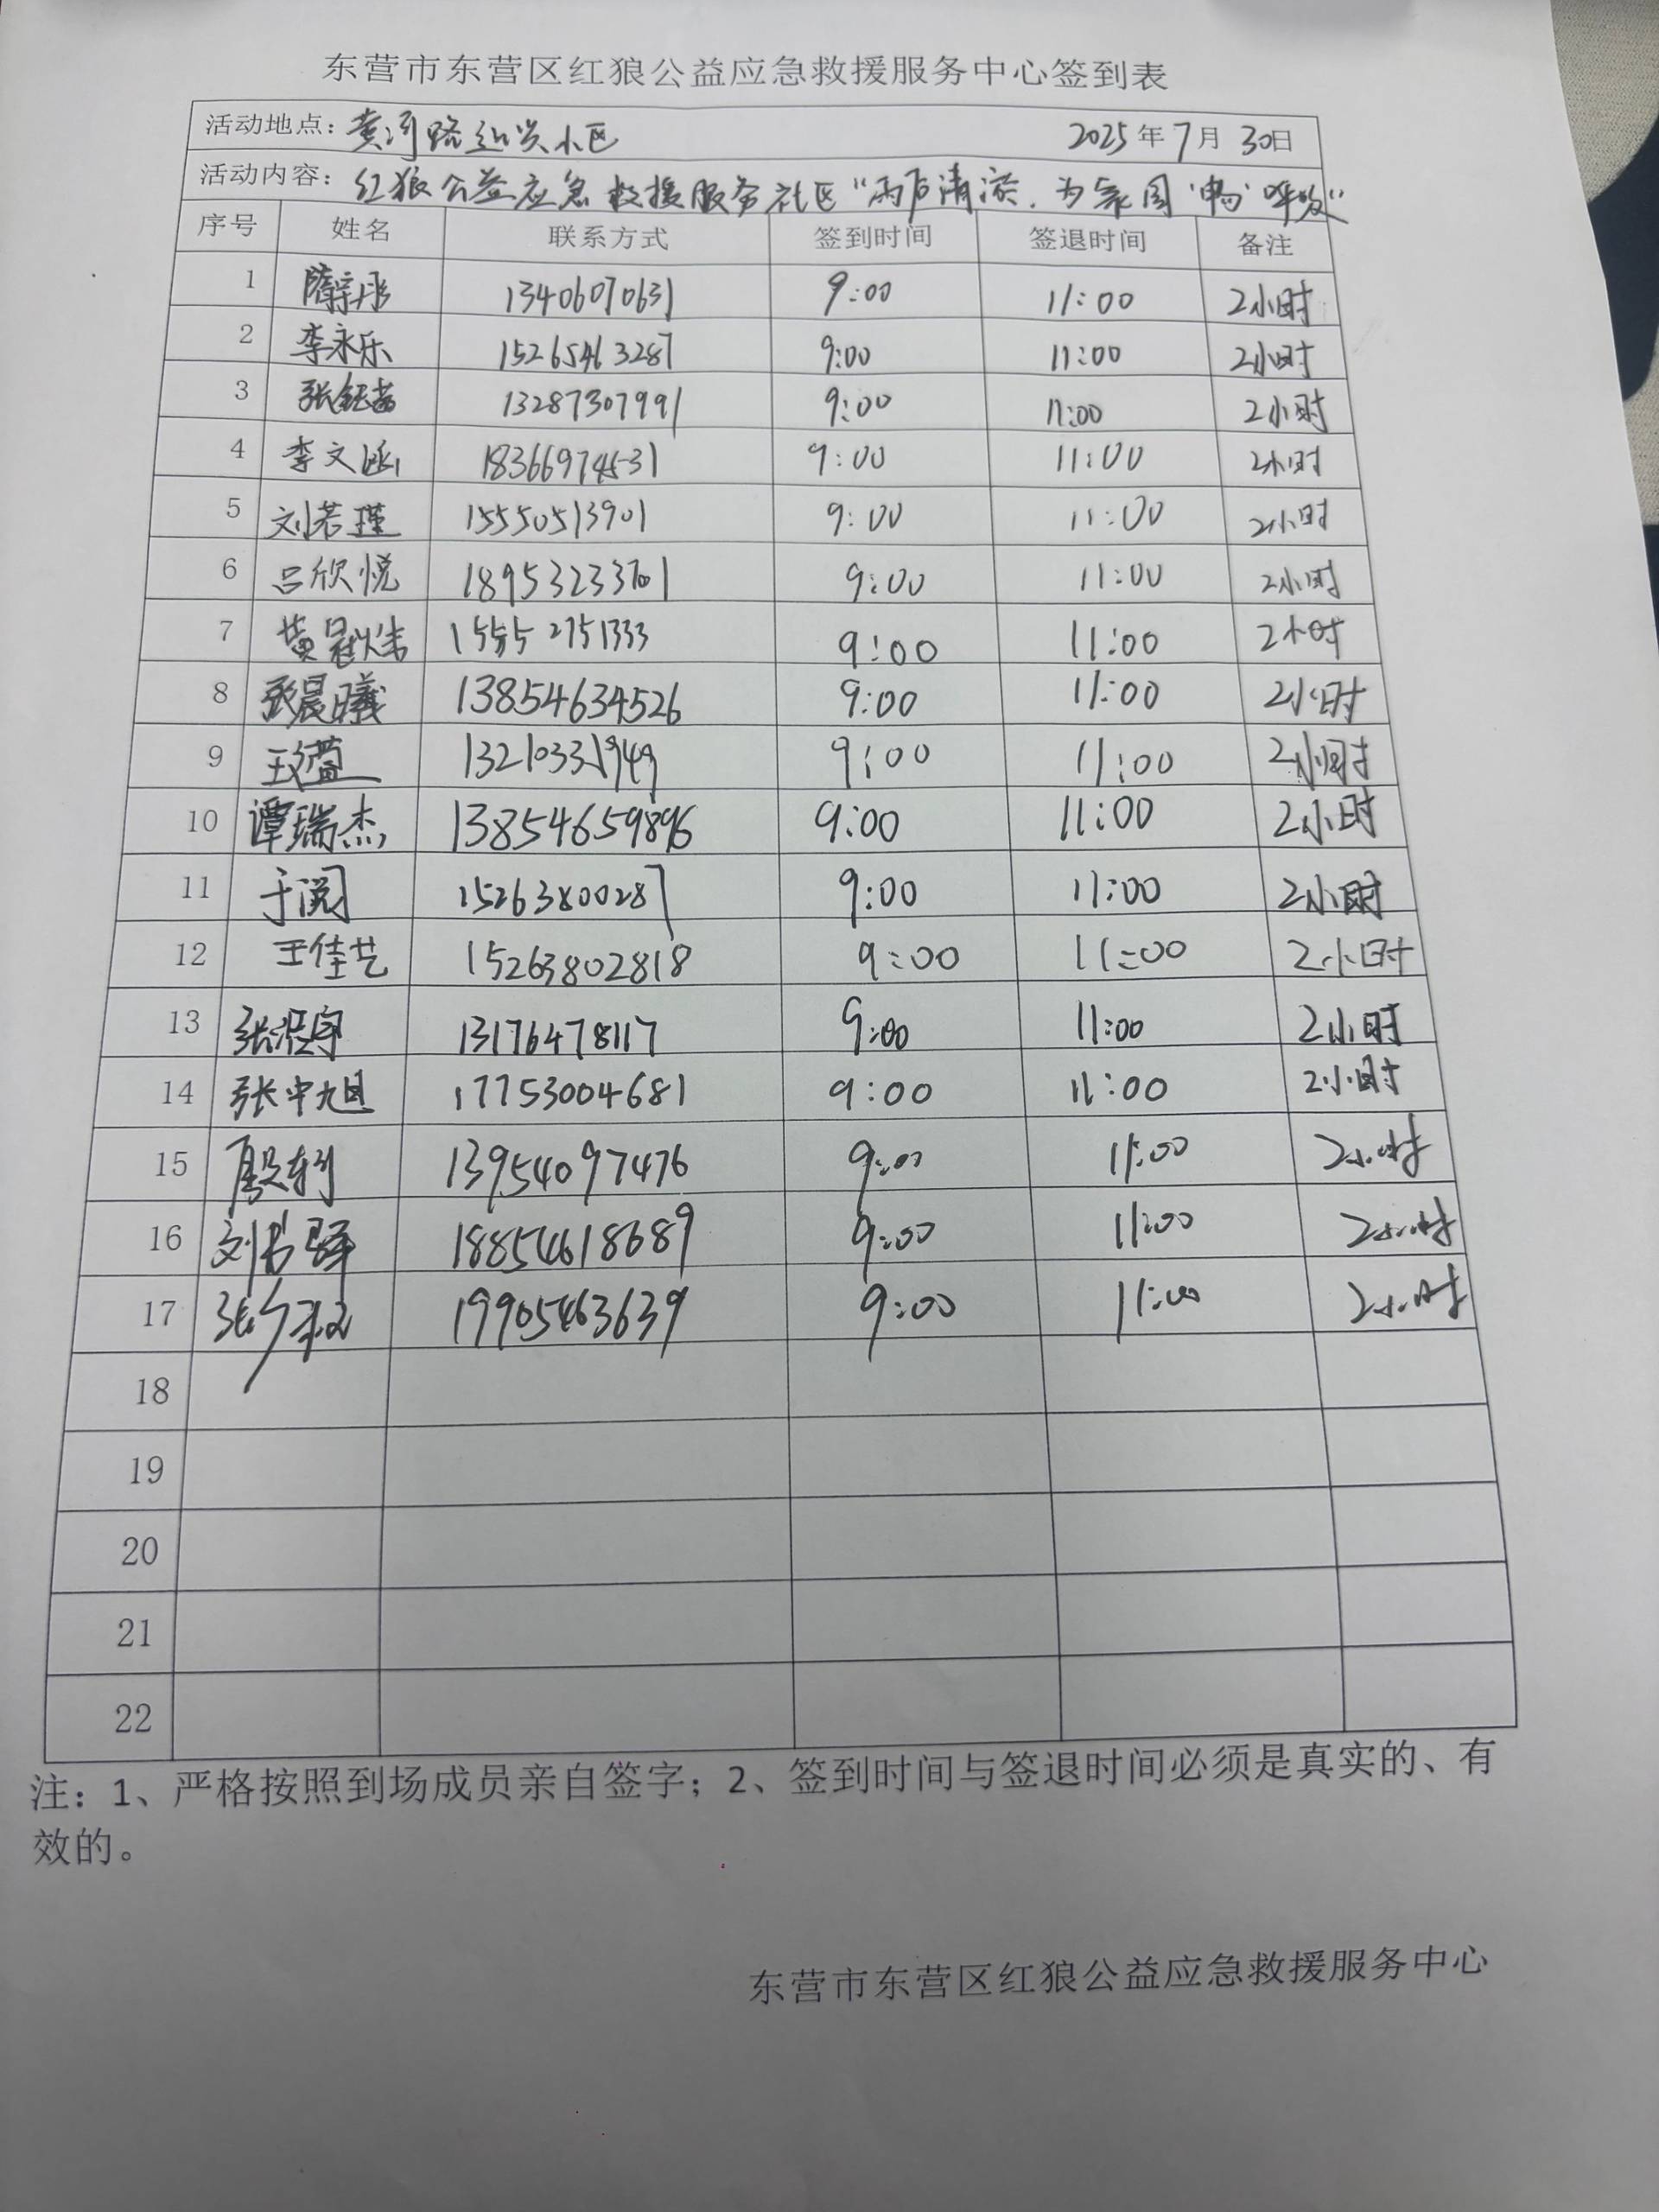 东营市东营区红狼公益应急救援服务中心签到表
活动地点：黄河路绍兴小区 2025年7月30日
活动内容：红狼公益应急救援服务社区“雨后清淤，为家园‘畅’呼吸”
序号 姓名 联系方式 签到时间 签退时间 备注
1 隋宗彤 13406070631 9:00 11:00 2小时
2 李永乐 15265463287 9:00 11:00 2小时
3 张钰茹 13287307991 9:00 11:00 2小时
4 李文涵 18366974531 9:00 11:00 2小时
5 刘若瑾 15550513901 9:00 11:00 2小时
6 吕欣悦 18953233701 9:00 11:00 2小时
7 15552751333 9:00 11:00 2小时
8 张晨曦 13854634526 9:00 11:00 2小时
9 13210331949 9:00 11:00 2小时
10 谭瑞杰 13854659896 9:00 11:00 2小时
11 于阅 15263800287 9:00 11:00 2小时
12 王佳艺 15263802818 9:00 11:00 2小时
13 13176478117 9:00 11:00 2小时
14 张中旭 17753004681 9:00 11:00 2小时
15 13954097476 9:00 11:00 2小时
16 刘书驿 18854618689 9:00 11:00 2小时
17 19905463639 9:00 11:00 2小时
18
19
20
21
22
注：1、严格按照到场成员亲自签字；2、签到时间与签退时间必须是真实的、有
效的。
东营市东营区红狼公益应急救援服务中心